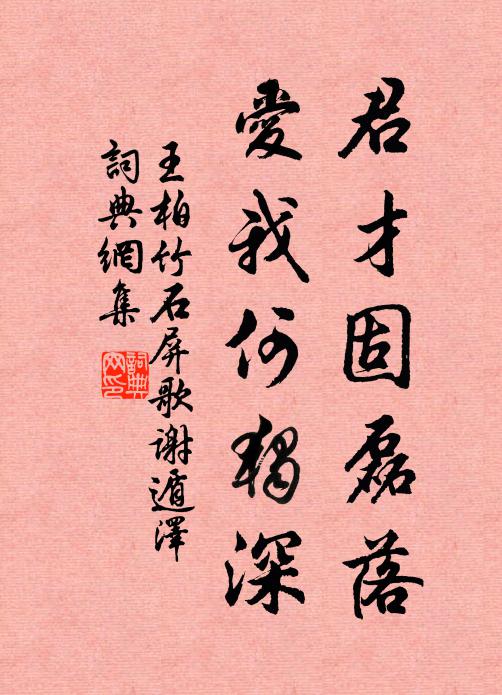 君才固磊落
愛我何獨深
王柏竹石屏歌謝遁澤
詞典網集
詞典網印